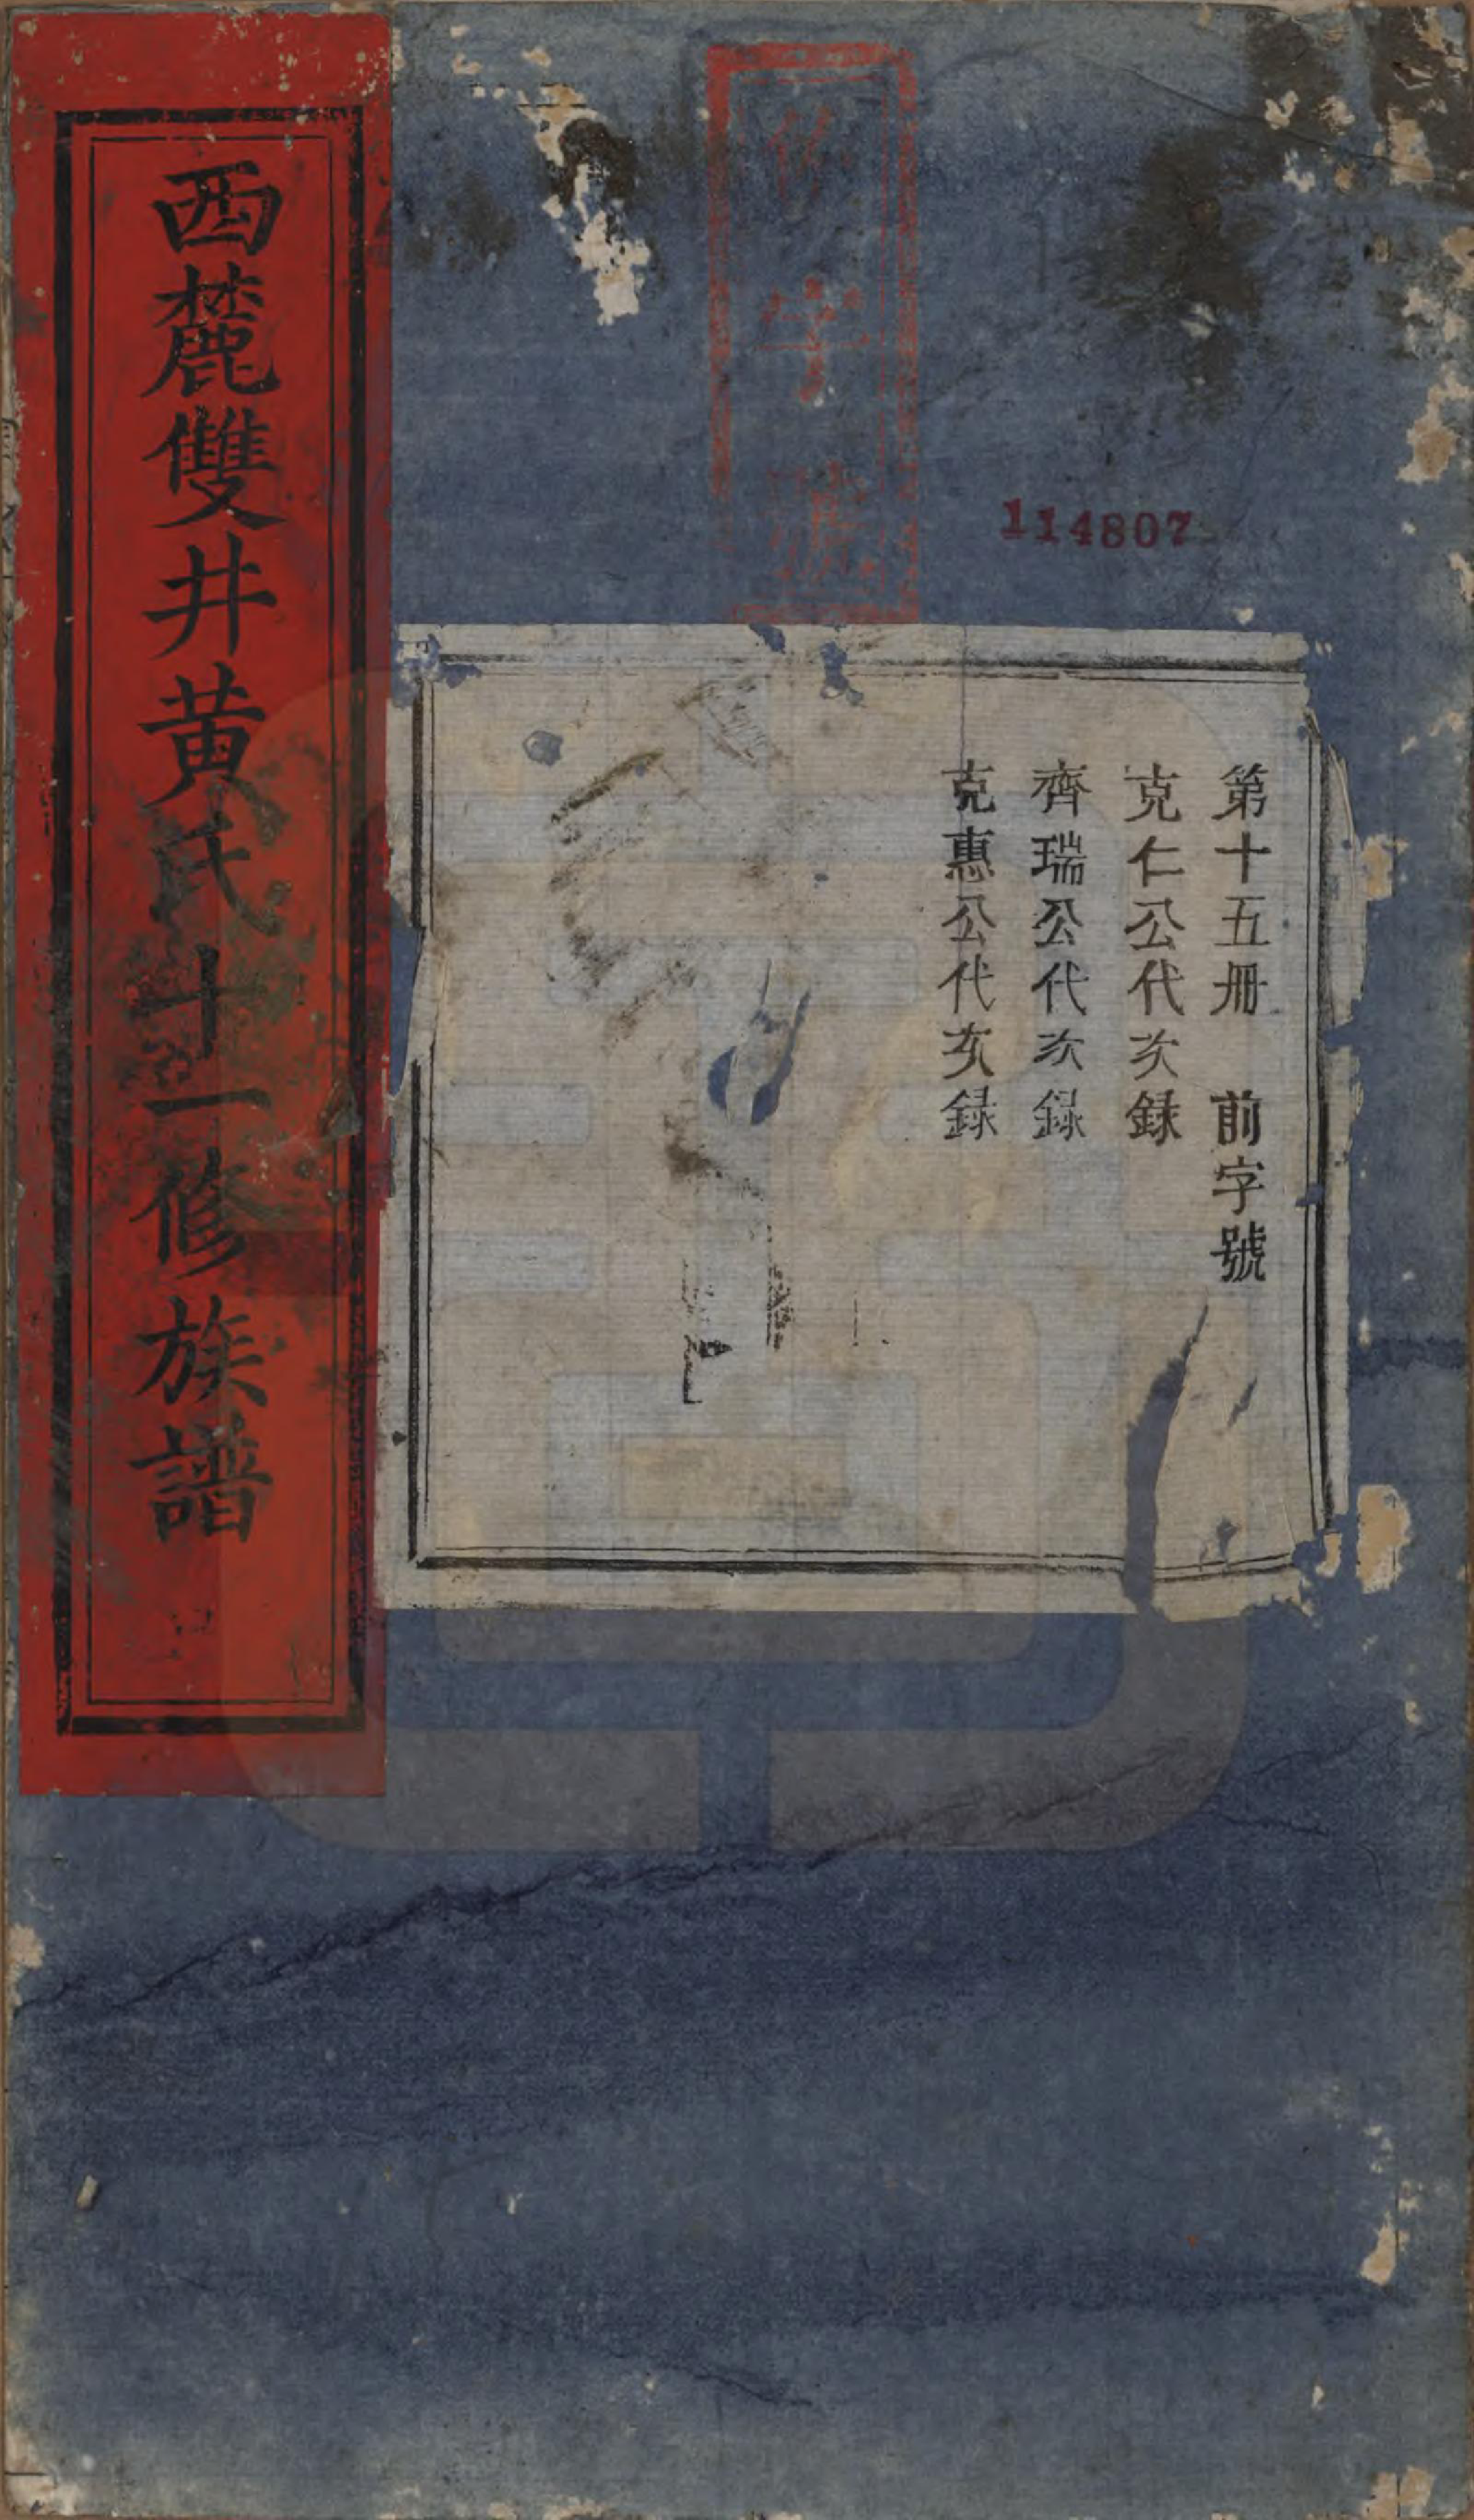 西麓雙井黄氏十一修族譜
114807
第十五冊 前字號
克仁公代次録
齊瑞公代次録
克惠公代次録